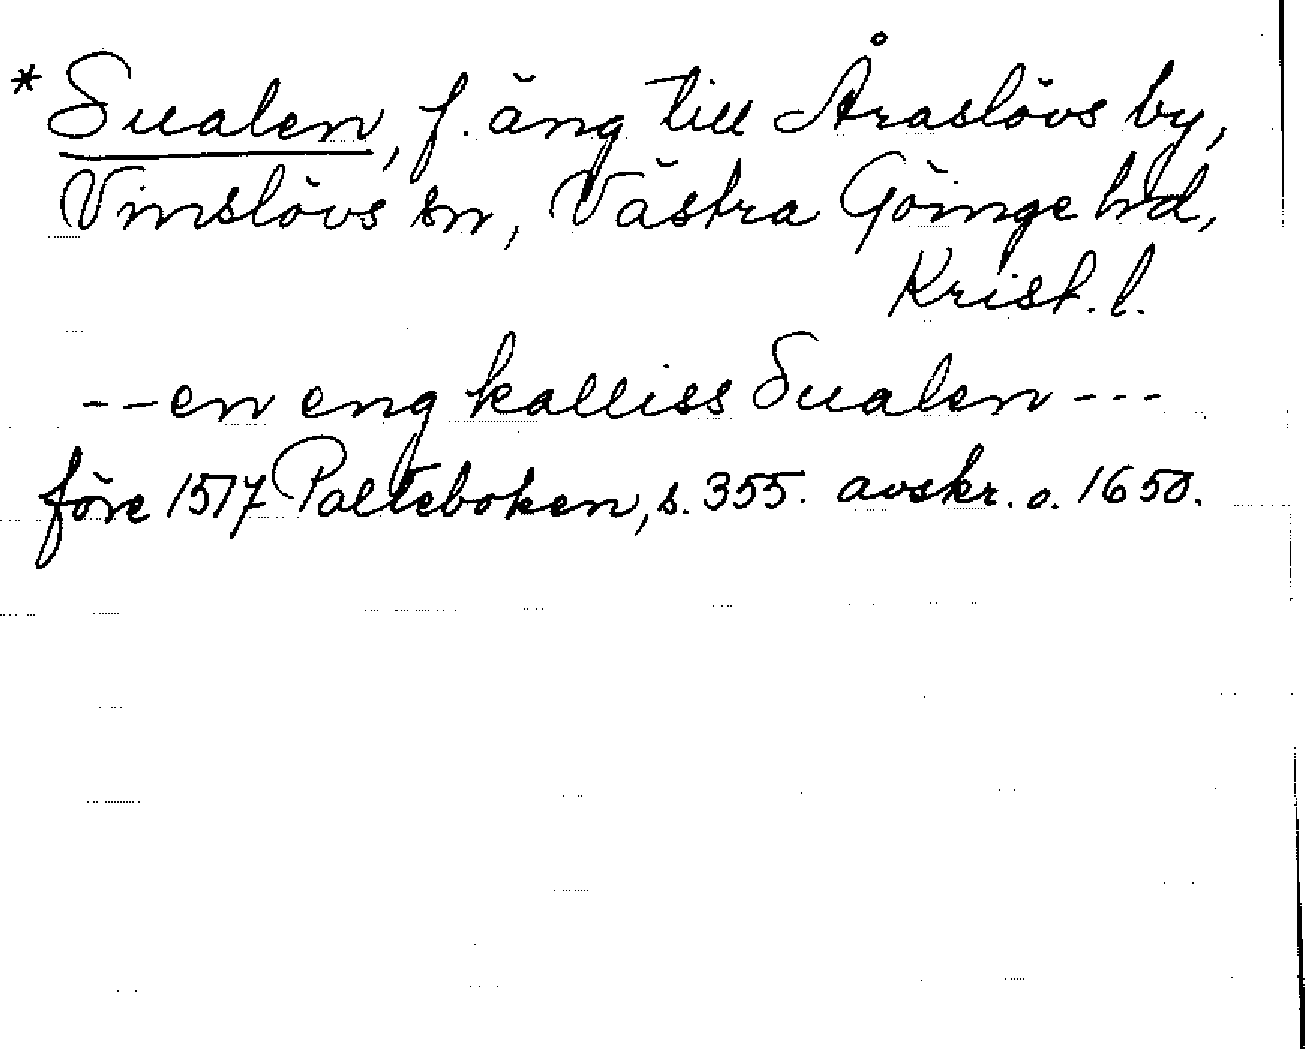 * Sualen, f. äng till Åraslövs by,
Vinslövs sn, Västra Göinge hd,
Krist. l.
--en eng kalliss Sualen---
före 1517 Palteboken, s. 355. avskr. o. 1650.